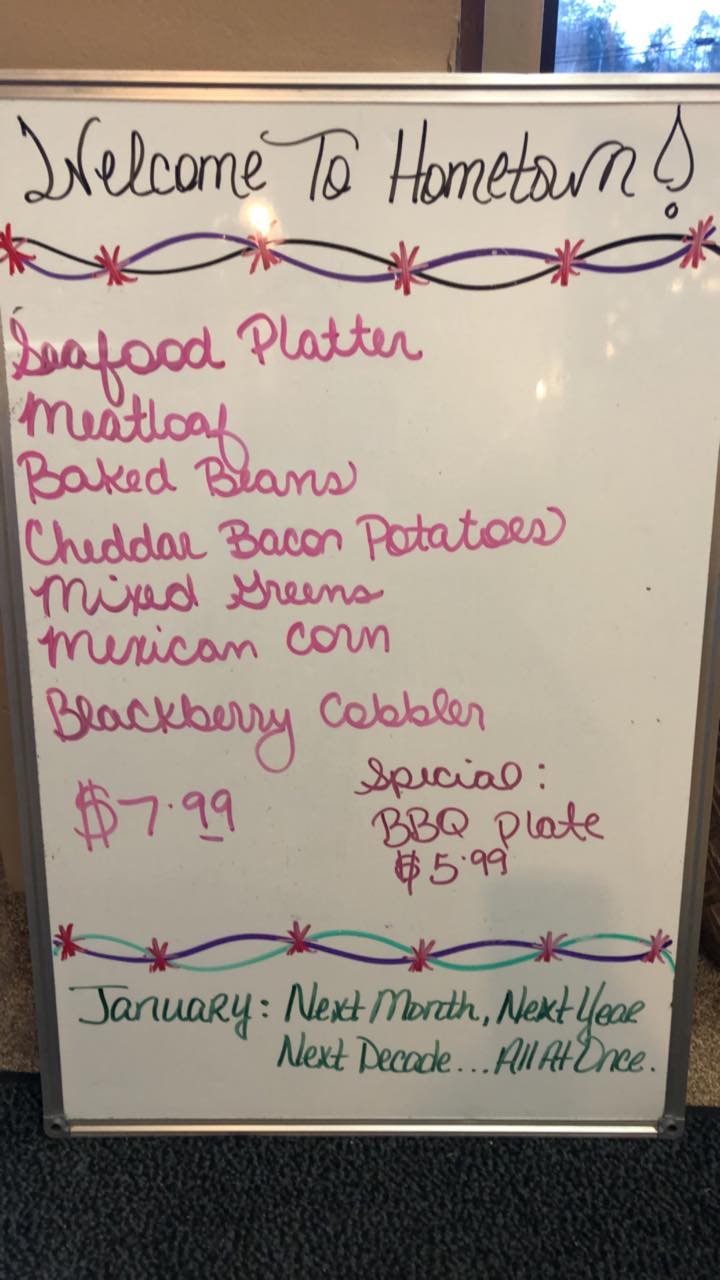 Welcome To Hometown!
Seafood Platter
Meatloaf
Baked Beans
Cheddar Bacon Potatoes
Mixed Greens
Mexican Corn
Blackberry Cobbler
$7.99
Special:
BBQ Plate
$5.99
January: Next Month, Next Year
Next Decade... All At Once.